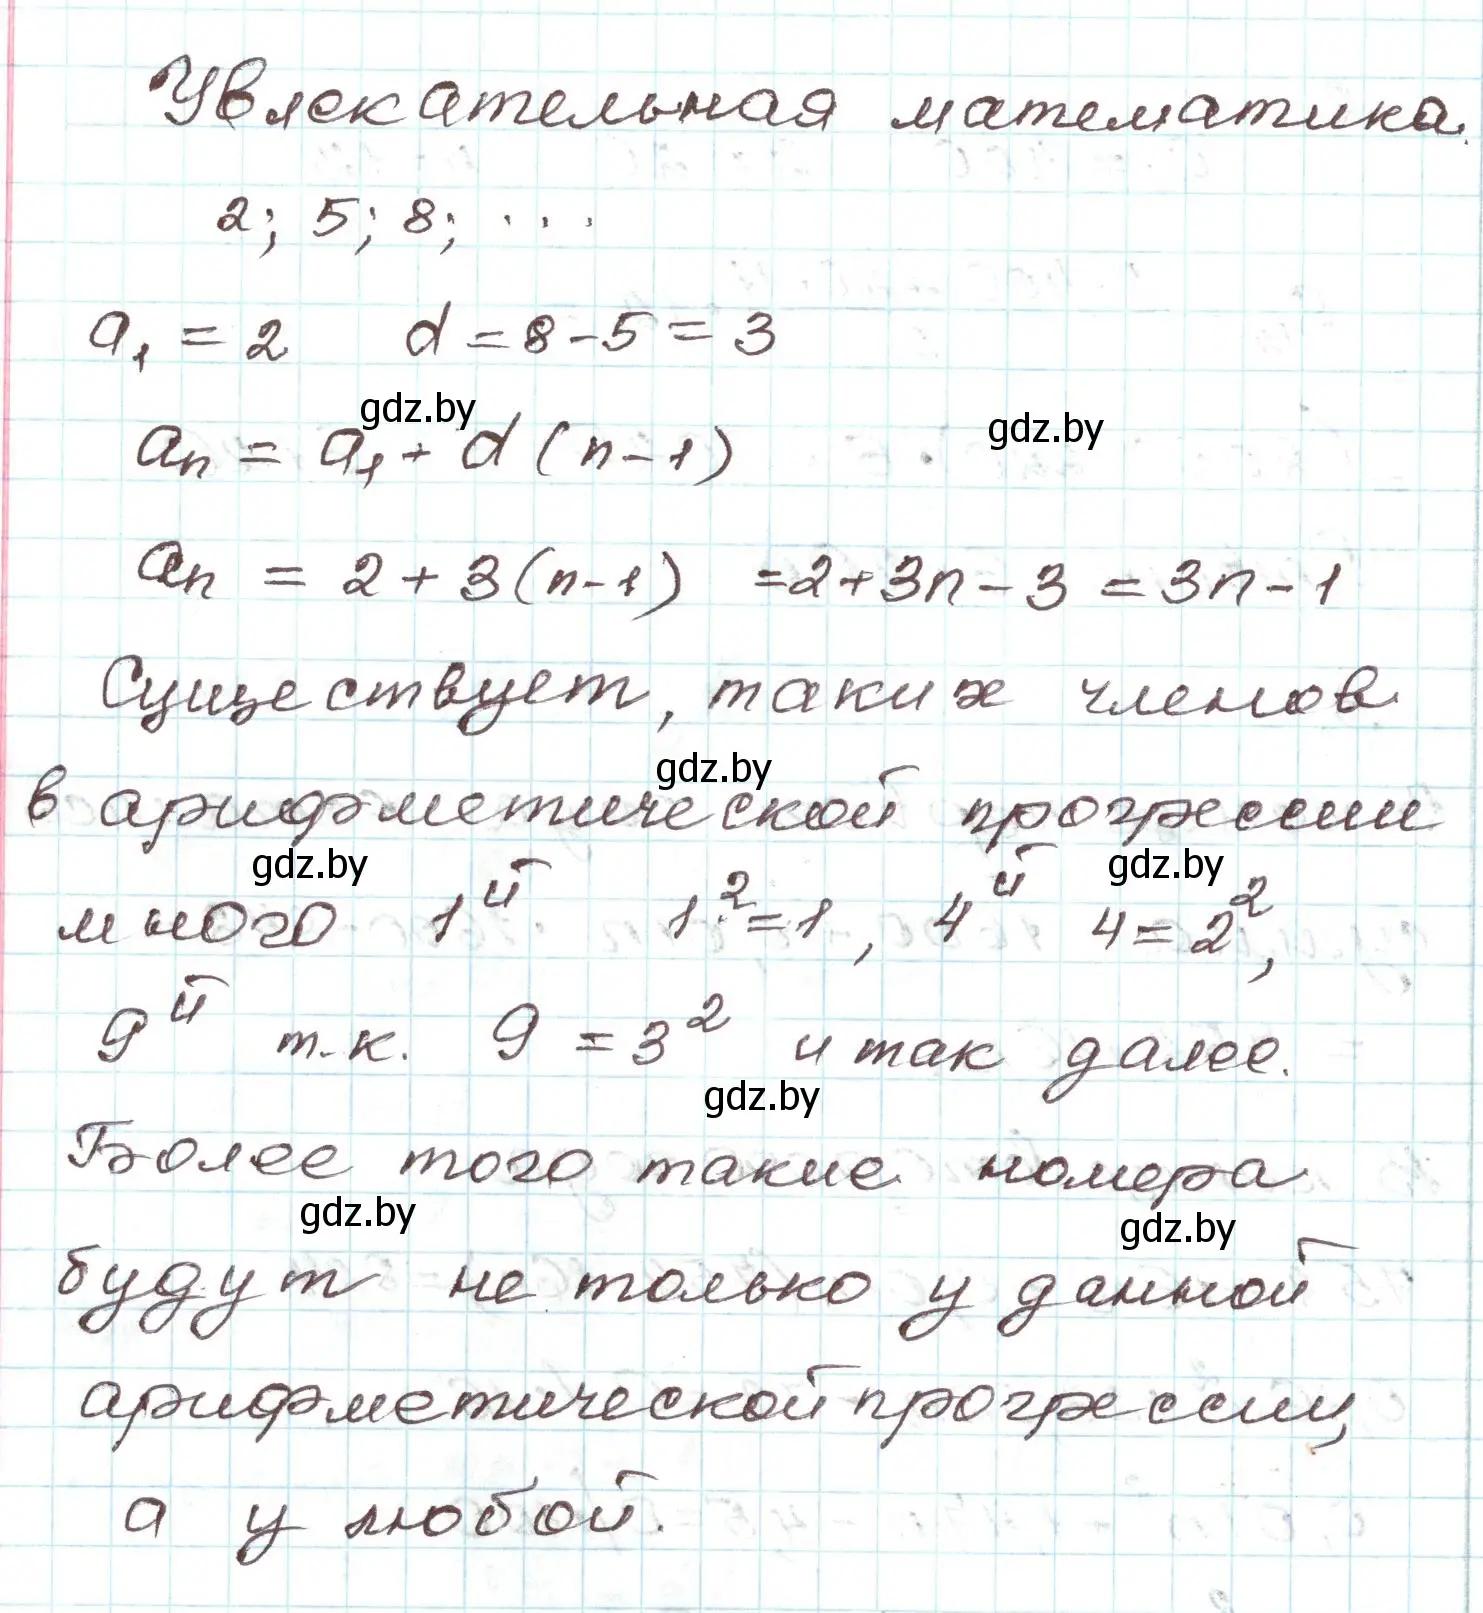 Увлекательная математика.
2; 5; 8; ...
a₁ = 2 d = 8 - 5 = 3
gdz.by
gdz.by
aₙ = a₁ + d (n - 1)
aₙ = 2 + 3(n - 1) = 2 + 3n - 3 = 3n - 1
Существует, таких членов
gdz.by
в арифметической прогрессии
gdz.by
gdz.by
много 1й 1² = 1, 4й 4 = 2²,
9й т.к. 9 = 3² и так далее.
gdz.by
Более того такие номера
gdz.by
gdz.by
будут не только у данной
арифметической прогрессии,
а у любой.